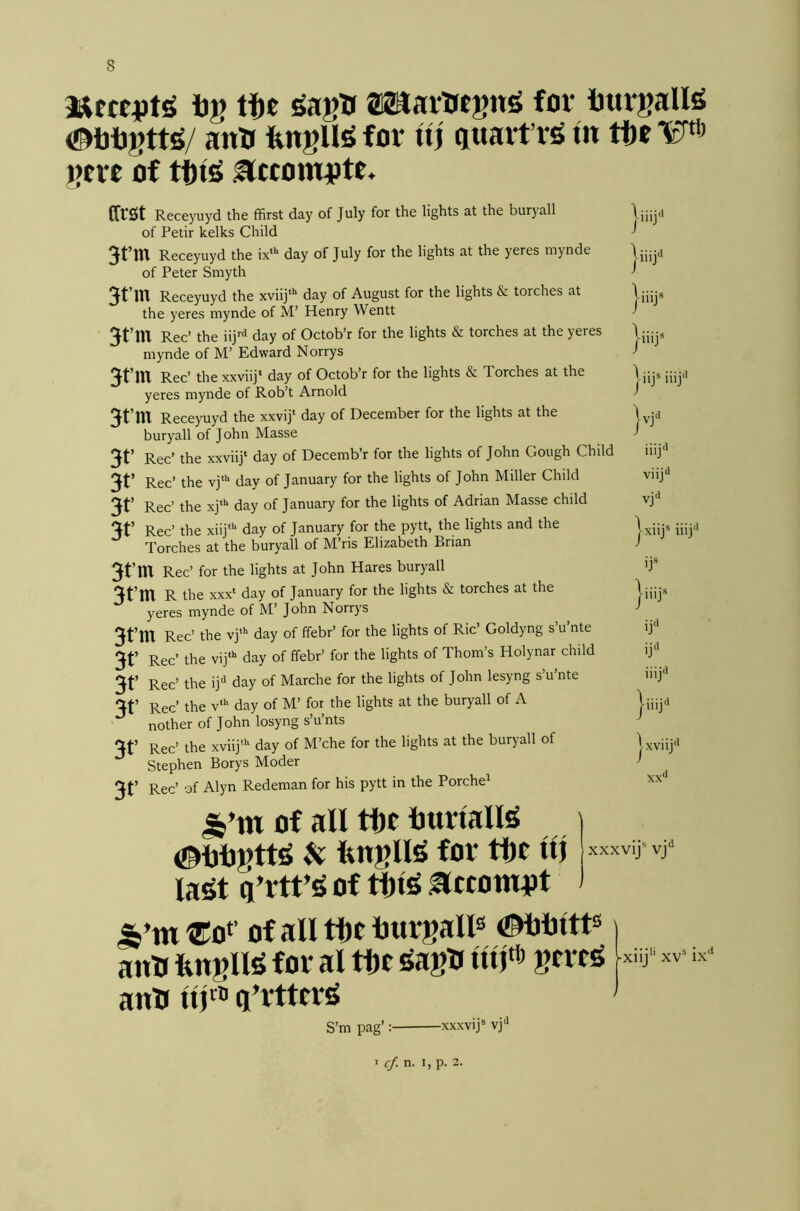 8
Receptś by the śayd Wardeynś for buryallś
Obbyttś/ and knyllś for iij quart'rś in the Vth
yere of thiś Accompte.
ffrśt Receyuyd the ffirst day of July for the lights at the buryall
of Petir kelks Child } iiijd
It'm Receyuyd the ixth day of July for the lights at the yeres mynde
of Peter Smyth } iiijd
It'm Receyuyd the xviijth day of August for the lights & torches at
the yeres mynde of M' Henry Wentt } iiijs
It'm Rec' the iijrd day of Octob'r for the lights & torches at the yeres
mynde of M' Edward Norrys } iiijs
It'm Rec' the xxviijt day of Octob'r for the lights & Torches at the
yeres mynde of Rob't Arnold } iijs iiijd
It'm Receyuyd the xxvijt day of December for the lights at the
buryall of John Masse } vjd
It' Rec' the xxviijt day of Decemb'r for the lights of John Gough Child iiijd
It' Rec' the vjth day of January for the lights of John Miller Child viijd
It' Rec' the xjth day of January for the lights of Adrian Masse child vjd
It' Rec' the xiijth day of January for the pytt, the lights and the
Torches at the buryall of M'ris Elizabeth Brian } xiijs iiijd
It'm Rec' for the lights at John Hares buryall ijs
It'm R the xxxt day of January for the lights & torches at the
yeres mynde of M' John Norrys } iiijs
It'm Rec' the vjth day of ffebr' for the lights of Ric' Goldyng s'u'nte ijd
It' Rec' the vijth day of ffebr' for the lights of Thom's Holynar child ijd
It' Rec' the ijd day of Marche for the lights of John lesyng s'u'nte iiijd
It' Rec' the vth day of M' for the lights at the buryall of A
nother of John losyng s'u'nts } iiijd
It' Rec' the xviijth day of M'che for the lights at the buryall of
Stephen Borys Moder } xviijd
It' Rec' of Alyn Redeman for his pytt in the Porche1 xxd
S'm of all the buriallś
Obbyttś & knyllś for the iij } xxxvijs vjd
laśt q'rtt'ś of thiś Accompt
S'm Tot' of all the buryalls Obbitts
and knyllś for al the śayd iiijth yereś } xiijli xvs ixd
and iijrd q'rtterś
S'm pag' :———xxxvijs vjd
1 cf. n. 1, p. 2.